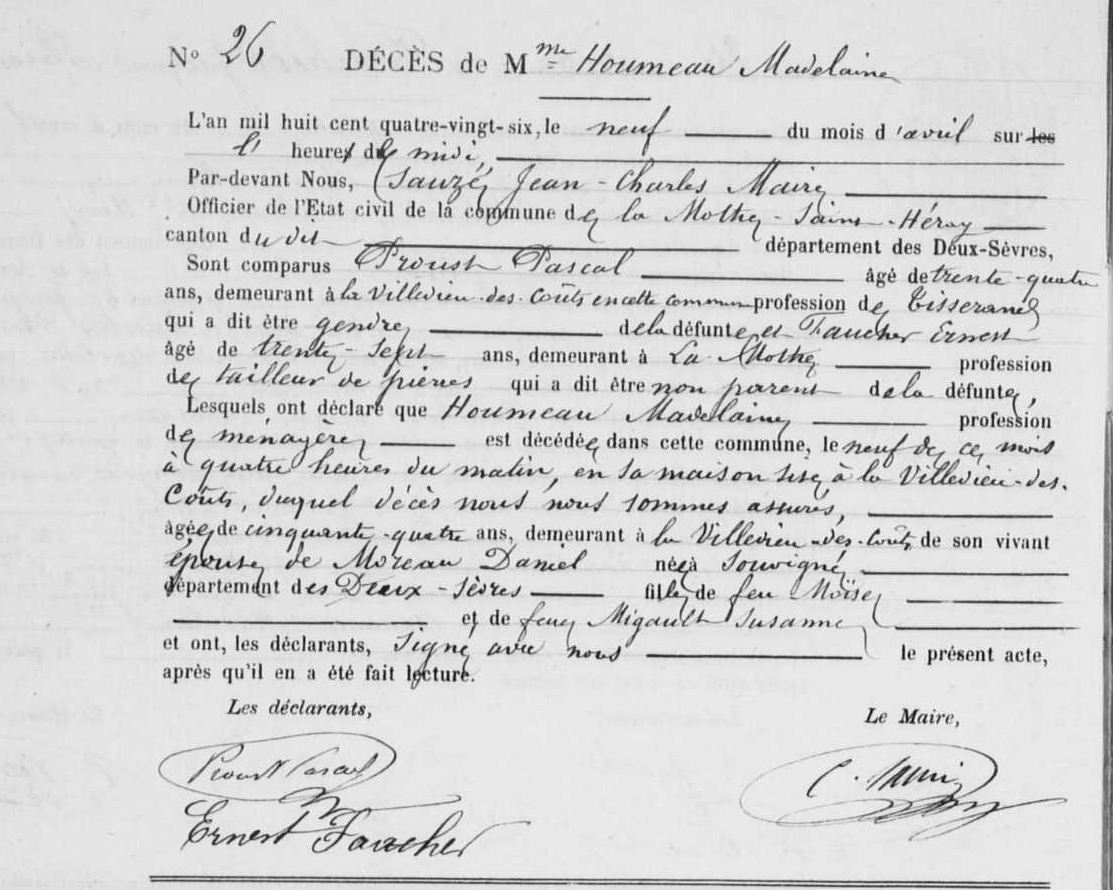 N° 26 DÉCÈS de Mme Houmeau Madelaine
L'an mil huit cent quatre-vingt-six, le neuf du mois d'avril sur les
heures de midi,
Par-devant Nous, Sauzé, Jean-Charles Maire
Officier de l'Etat civil de la commune de la Mothe-Saint-Héray
canton dudit département des Deux-Sèvres,
Sont comparus Proust Pascal âgé de trente-quatre
ans, demeurant à la Villedieu-des-Coûts en cette commune profession de Tisserand
qui a dit être gendre de la défunte et Faucher Ernest
âgé de trente-sept ans, demeurant à La Mothe profession
de tailleur de pierres qui a dit être non parent de la défunte,
Lesquels ont déclaré que Houmeau Madelaine profession
de ménagère est décédée dans cette commune, le neuf de ce mois
à quatre heures du matin, en sa maison sise à la Villedieu-des-
Coûts, duquel décès nous nous sommes assurés,
âgée de cinquante-quatre ans, demeurant à la Villedieu-des-Coûts de son vivant
épouse de Moreau Daniel née à Souvigné
département des Deux-Sèvres fille de feu Moïse
et de feue Migault Susanne
et ont, les déclarants, signé avec nous le présent acte,
après qu'il en a été fait lecture.
Les déclarants, Le Maire,
Proust Pascal
Ernest Faucher